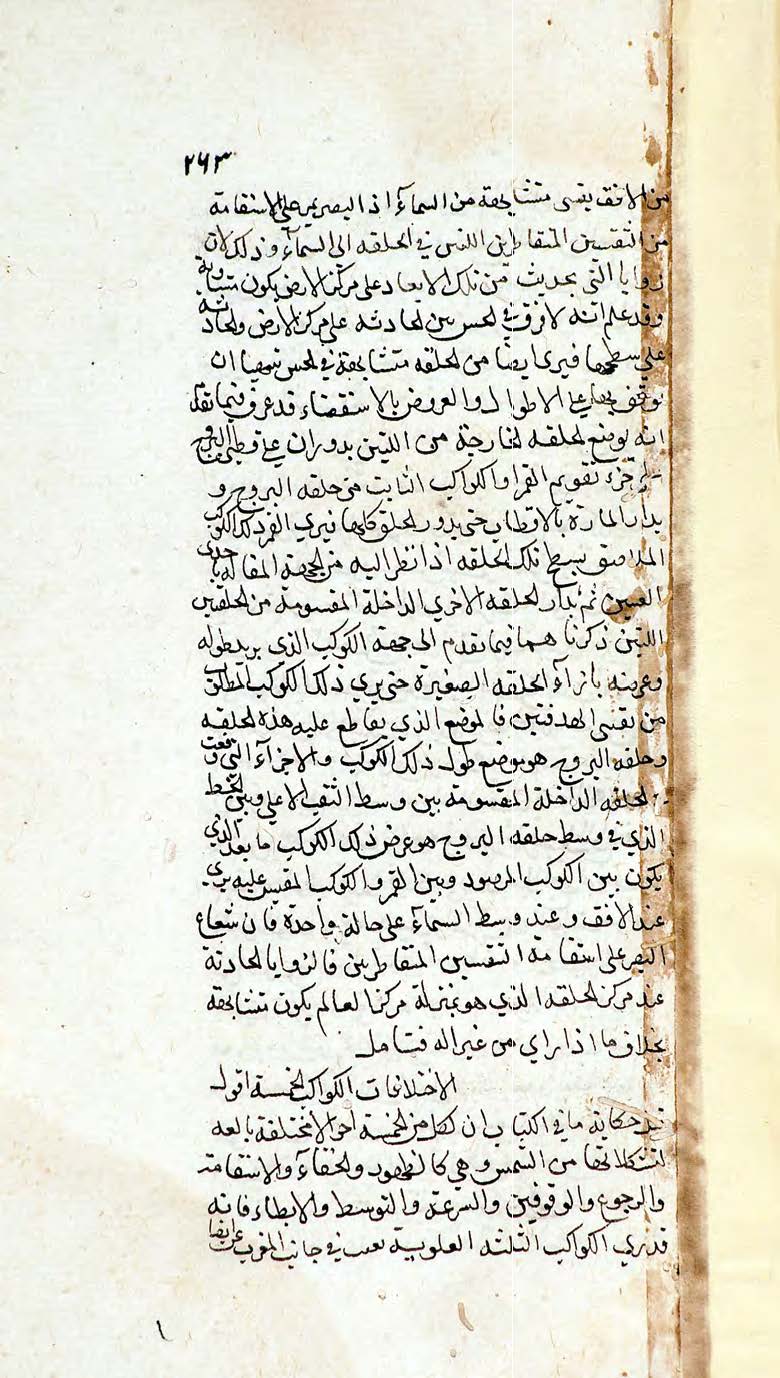 ٢٦٣
من الافق بقسى متشابهة من السماء اذ البصر يمر على الاستقامة
من الثقبين المتقاطرين اللتين في الحلقه الى السماء وذلك لان
زوايا التى بحديث من تلك الابعاد على مركز الارض يكون متساوية
وقد علم انه لا فرق في الحس بين الحادثه على مركز الارض والحادثه
على سطحها فيرى ايضا من الحلقه متشابهة في الحس ان
توقف بها على الاطوال والعروض بالاستقضاء قد عرف فيما تقدم
انه يوضع الحلقه الخارجة من اللتين يدوران على قطبى البروج
جزء تقويم القمر او الكواكب الثابت من حلقه البروج و
يدار المارة بالاقطاب حتى يدور الحلق كلها فيرى القمر ذلك الكوكب
الملاصق بسطح تلك الحلقه اذا نظر اليه من الجهة المقاله باحدى
العينين ثم يدار الحلقه الاخري الداخلة المقسومة من الحلقتين
اللتين ذكرنا هما فيما تقدم الى جهة الكوكب الذي يريد طوله
وعرضه بازاء الحلقه الصغيرة حتى يري ذلك الكوكب المطلق
من ثقبى الهدفتين فالموضع الذي يقاطع عليه هذه الحلقه
وحلقه البروج هو موضع طول ذلك الكوكب والاجزاء التى وقعت
الحلقه الداخلة المقسومة بين وسط الثقب الاعلى وبين الخط
الذي في وسط حلقه البروج هو عرض ذلك الكوكب ما بعد الذي
يكون بين الكوكب المرصود وبين القمر والكوكب المقيس عليه يري
عند الافق وعند وسط السماء على حالة واحدة فان شعاع
البصر على استقامة الثقبين المتقاطرين فالزوايا الحادثة
عند مركز الحلقه الذي هو بمنزلة مركز العالم يكون متشابهة
بخلاف ما اذا راي من غير اله فتامل
الاختلافات الكواكب الخمسة اقول
حكاية ما في الكتاب ان لكل من الخمسة احوالا مختلفة بالعه
لتشكلاتها من الشمس وهي كالظهور والخفاء والاستقامة
والرجوع والوقوفين والسرعة والتوسط والابطاء فانه
قد نري الكواكب الثلثه العلوية في جانب المغرب